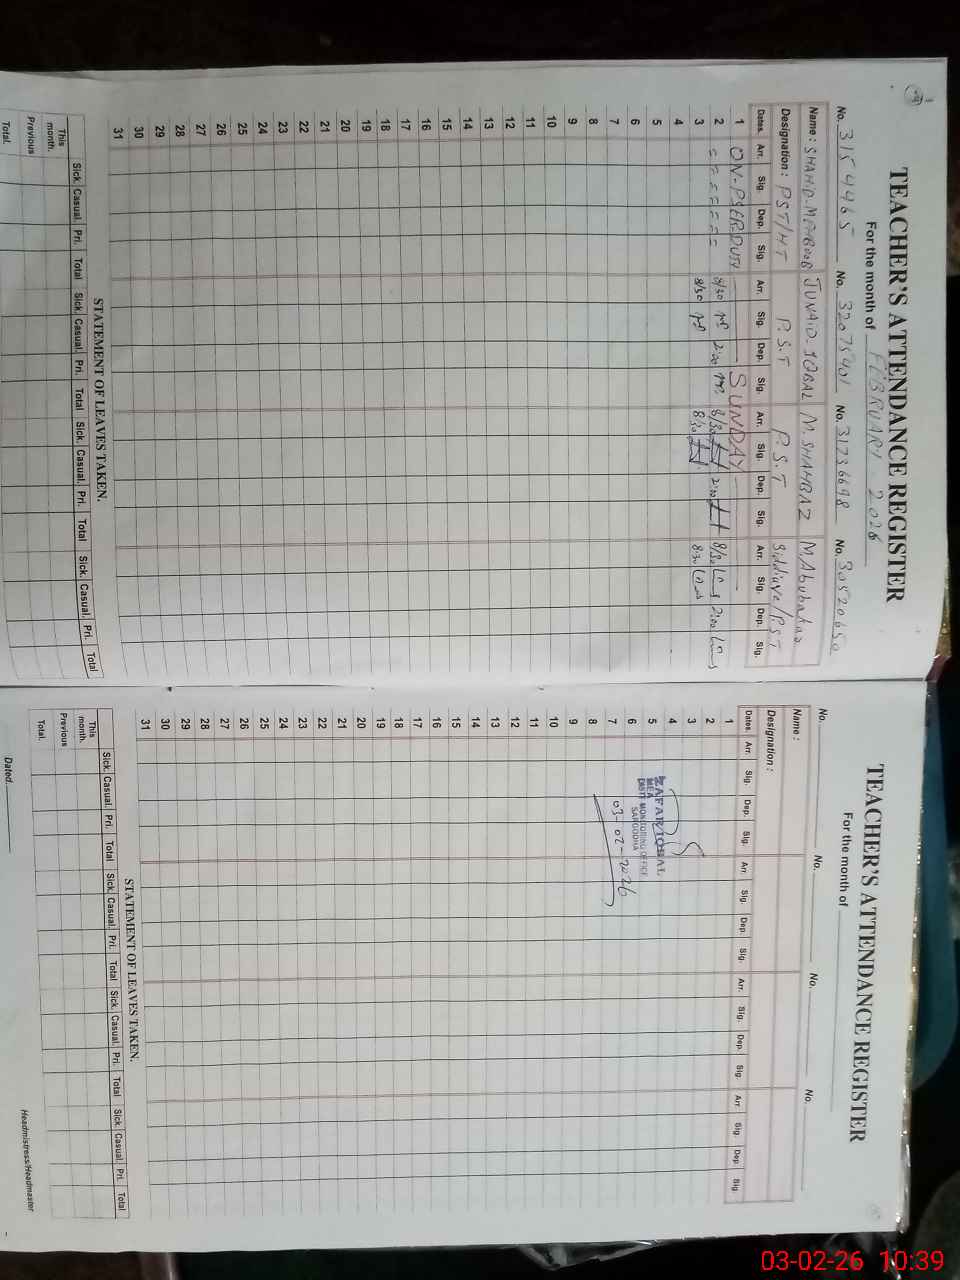 TEACHER'S ATTENDANCE REGISTER
For the month of FEBRUARY 2026
No. 3154465 No. 32075401 No. 31736698 No. 30520650
Name: SHAHID MEHBOOB JUNAID IQBAL M. SHAHBAZ M. Abubakar
Designation: PST/HT P.S.T P.S.T Siddique/P.ST
Dates. Arr. Sig. Dep. Sig. Arr. Sig. Dep. Sig. Arr. Sig. Dep. Sig. Arr. Sig. Dep. Sig.
1 ON-PSER DUTY SUNDAY
2 = = = = = = 8/30 2:00 8/30 2:00 8/30 2:00
3 8/30 8/30 8:30
4
5
6
7
8
9
10
11
12
13
14
15
16
17
18
19
20
21
22
23
24
25
26
27
28
29
30
31
STATEMENT OF LEAVES TAKEN.
Sick. Casual. Pri. Total Sick. Casual. Pri. Total Sick. Casual. Pri. Total Sick. Casual. Pri. Total
This month.
Previous
Total.
TEACHER'S ATTENDANCE REGISTER
For the month of
No. No. No. No.
Name:
Designation:
Dates. Arr. Sig. Dep. Sig. Arr. Sig. Dep. Sig. Arr. Sig. Dep. Sig. Arr Sig. Dep. Sig.
1
2
3
4
5
6
7
8
9
10
11
12
13
14
15
16
17
18
19
20
21
22
23
24
25
26
27
28
29
30
31
ZAFAR IQBAL
MEA
DISTT MONITORING OFFICE
SARGODHA
03-02-2026
STATEMENT OF LEAVES TAKEN.
Sick. Casual. Pri. Total Sick. Casual. Pri. Total Sick. Casual. Pri. Total Sick. Casual. Pri. Total
This month.
Previous
Total.
Dated.
Headmistress/Headmaster
03-02-26 10:39